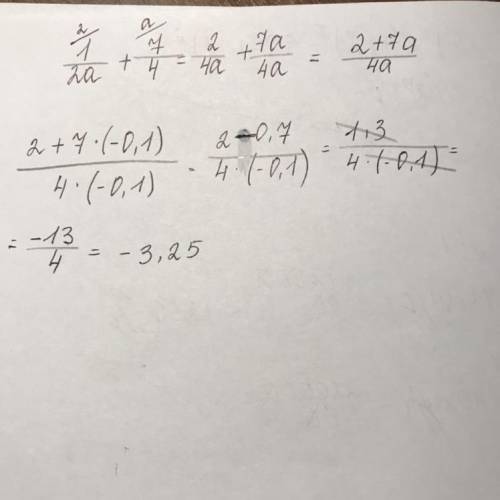 2/ a/
1/2a + 7/4 = 2/4a + 7a/4a = (2+7a)/4a
(2+7·(-0,1))/(4·(-0,1)) = (2-0,7)/(4·(-0,1)) = 1,3/(4·(-0,1)) =
= -13/4 = -3,25